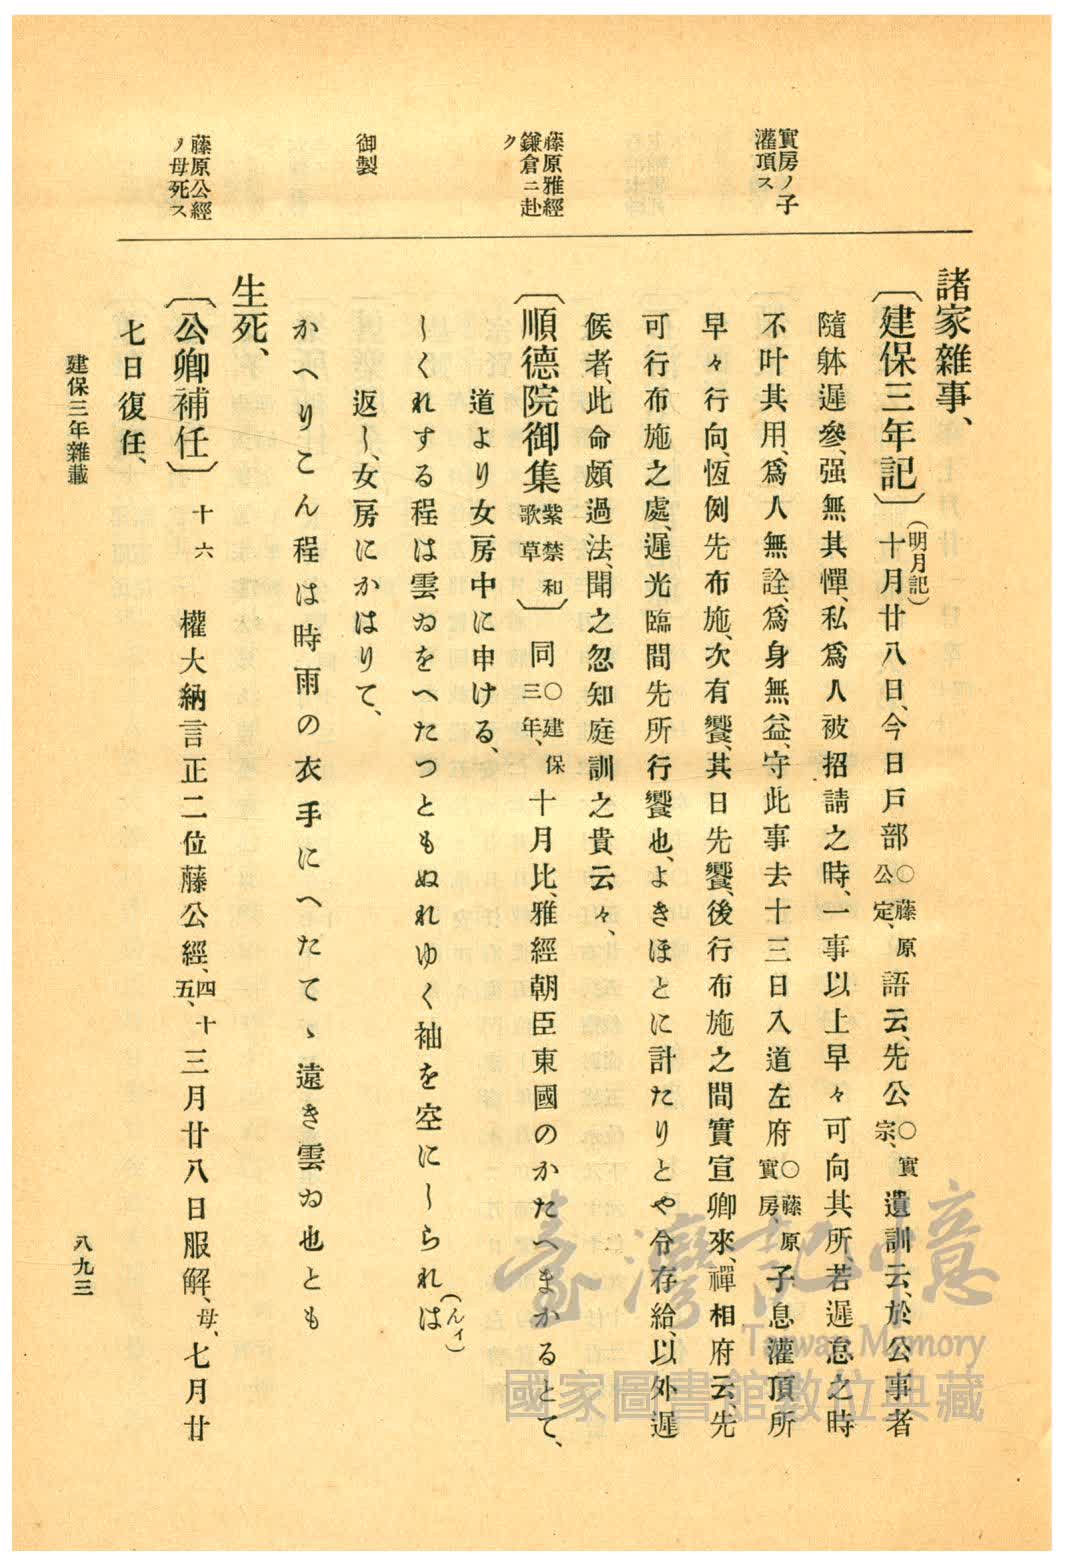 實房ノ子
灌頂ス
藤原雅經
鎌倉ニ赴
ク
御製
藤原公經
ノ母死ス
諸家雜事、
〔建保三年記〕(明月記)十月廿八日、今日戶部〇藤原公定、語云、先公〇實宗、遺訓云、於公事者
隨躰遲參、强無其憚、私爲人被招請之時、一事以上早々可向其所、若遲怠之時
不叶其用、爲人無詮、爲身無益、守此事去十三日入道左府〇藤原實房子息灌頂所
早々行向、恆例先布施、次有饗、其日先饗、後行布施之間實宣卿來、禪相府云、先
可行布施之處、遲光臨間先所行饗也、よきほとに計たりとや令存給、以外遲
候者、此命頗過法、聞之忽知庭訓之貴云々、
〔順德院御集紫禁和歌草〕同〇建保三年、十月比、雅經朝臣東國のかたへまかるとて、
道より女房中に申ける、
しくれする程は雲ゐをへたつともぬれゆく袖を空にしられは(んイ)
返し、女房にかはりて、
かへりこん程は時雨の衣手にへたてゝ遠き雲ゐ也とも
生死、
〔公卿補任〕十六 權大納言正二位藤公經、四十五、三月廿八日服解、母、七月廿
七日復任、
建保三年雜載
八九三
臺灣記憶
Taiwan Memory
國家圖書館數位典藏